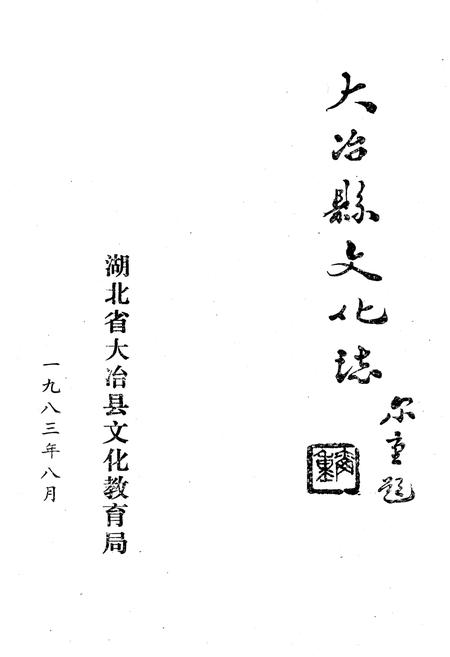 大冶縣文化誌
尔重题
尔重
湖北省大冶县文化教育局
一九八三年八月